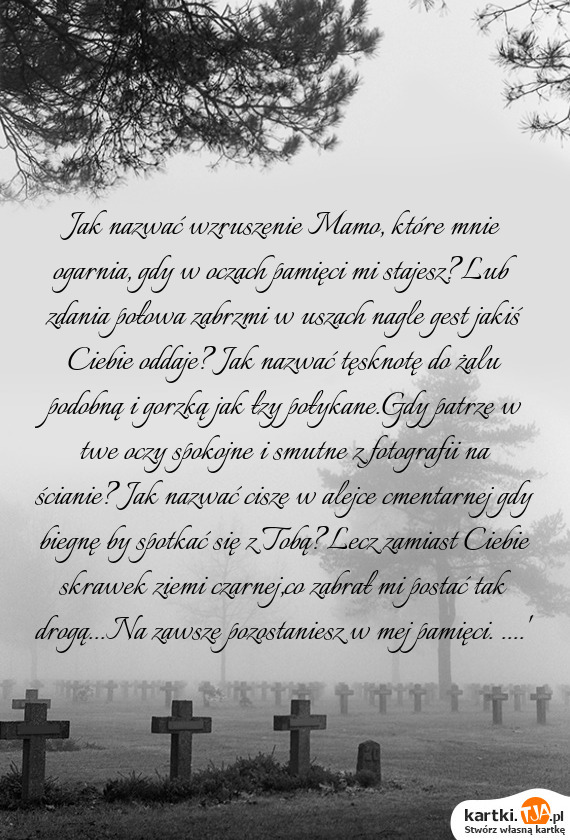 Jak nazwać wzruszenie Mamo, które mnie
ogarnia, gdy w oczach pamięci mi stajesz? Lub
zdania połowa zabrzmi w uszach nagle gest jakiś
Ciebie oddaje? Jak nazwać tęsknotę do żalu
podobną i gorzką jak łzy połykane.Gdy patrzę w
twe oczy spokojne i smutne z fotografii na
ścianie? Jak nazwać ciszę w alejce cmentarnej gdy
biegnę by spotkać się z Tobą? Lecz zamiast Ciebie
skrawek ziemi czarnej,co zabrał mi postać tak
drogą...Na zawsze pozostaniesz w mej pamięci. ....'
kartki.TJA.pl
Stwórz własną kartkę